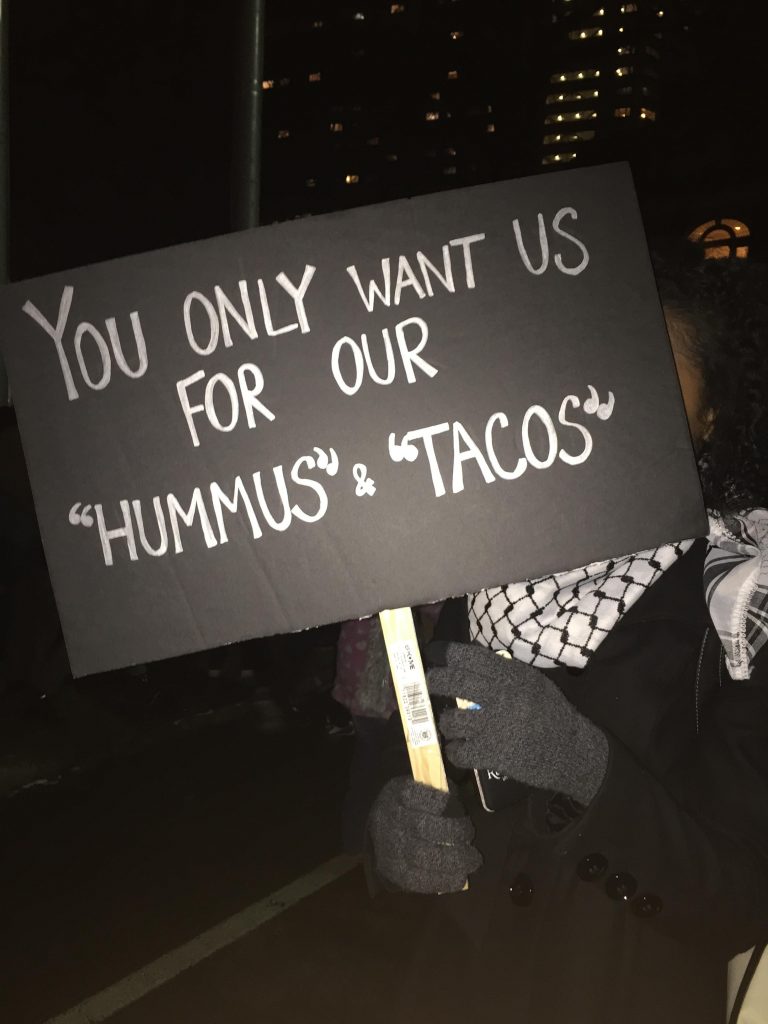 YOU ONLY WANT US
FOR OUR
“HUMMUS” & “TACOS”